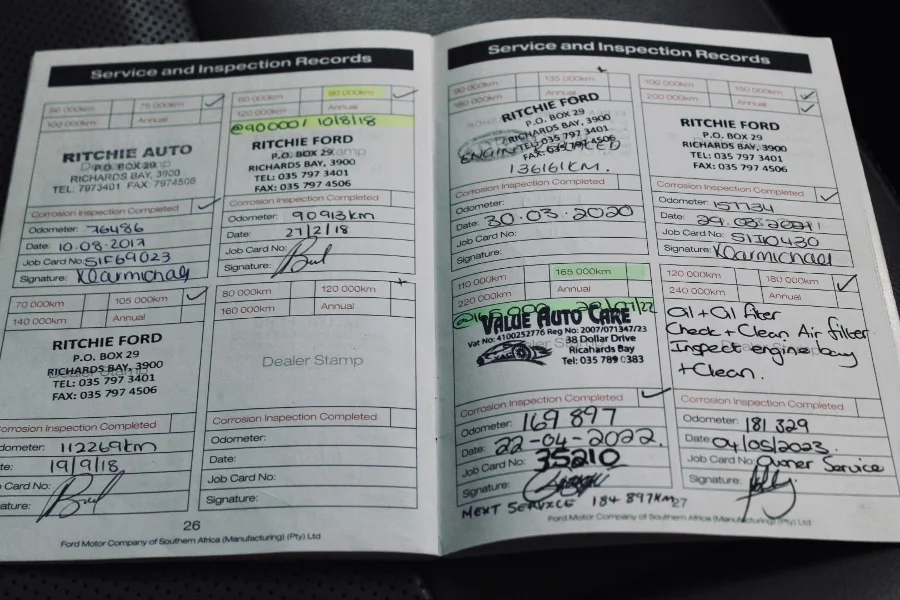 Service and Inspection Records
60 000km 75 000km
100 000km Annual
RITCHIE AUTO
P.O. BOX 29
RICHARDS BAY, 3900
TEL: 7973401 FAX: 7974506
Corrosion Inspection Completed
Odometer: 76486
Date: 10.08.2017
Job Card No: SIF69023
Signature:
60 000km 90 000km
120 000km Annual
@90000/ 10/8/18
RITCHIE FORD
P.O. BOX 29
RICHARDS BAY, 3900
TEL: 035 797 3401
FAX: 035 797 4506
Corrosion Inspection Completed
Odometer: 90913km
Date: 27/2/18
Job Card No:
Signature:
70 000km 105 000km
140 000km Annual
RITCHIE FORD
P.O. BOX 29
RICHARDS BAY, 3900
TEL: 035 797 3401
FAX: 035 797 4506
Corrosion Inspection Completed
dometer: 112269km
te: 19/9/18
Card No:
Signature:
80 000km 120 000km
160 000km Annual
Dealer Stamp
Corrosion Inspection Completed
Odometer:
Date:
Job Card No:
Signature:
26
Ford Motor Company of Southern Africa (Manufacturing) (Pty) Ltd
Service and Inspection Records
90 000km 135 000km
180 000km Annual
RITCHIE FORD
P.O. BOX 29
RICHARDS BAY, 3900
TEL: 035 797 3401
FAX: 035 797 4506
136161KM.
Corrosion Inspection Completed
Odometer:
Date: 30.03.2020
Job Card No:
Signature:
100 000km 150 000km
200 000km Annual
RITCHIE FORD
P.O. BOX 29
RICHARDS BAY, 3900
TEL: 035 797 3401
FAX: 035 797 4506
Corrosion Inspection Completed
Odometer: 157134
Date:
Job Card No:
Signature:
110 000km 165 000km
220 000km Annual
VALUE AUTO CARE
Vat No: 4100252776 Reg No: 2007/071347/23
38 Dollar Drive
Ricahards Bay
Tel: 035 789 0383
Corrosion Inspection Completed
Odometer: 169 897
Date: 22-04-2022.
Job Card No: 35210
Signature:
NEXT SERVICE 184 897KM
120 000km 180 000km
240 000km Annual
Oil + Oil filter
Check + Clean Air filter
Inspect engine bay
+ Clean.
Corrosion Inspection Completed
Odometer: 181 329
Date: 04/05/2023.
Job Card No: Owner Service
Signature:
27
Ford Motor Company of Southern Africa (Manufacturing) (Pty) Ltd